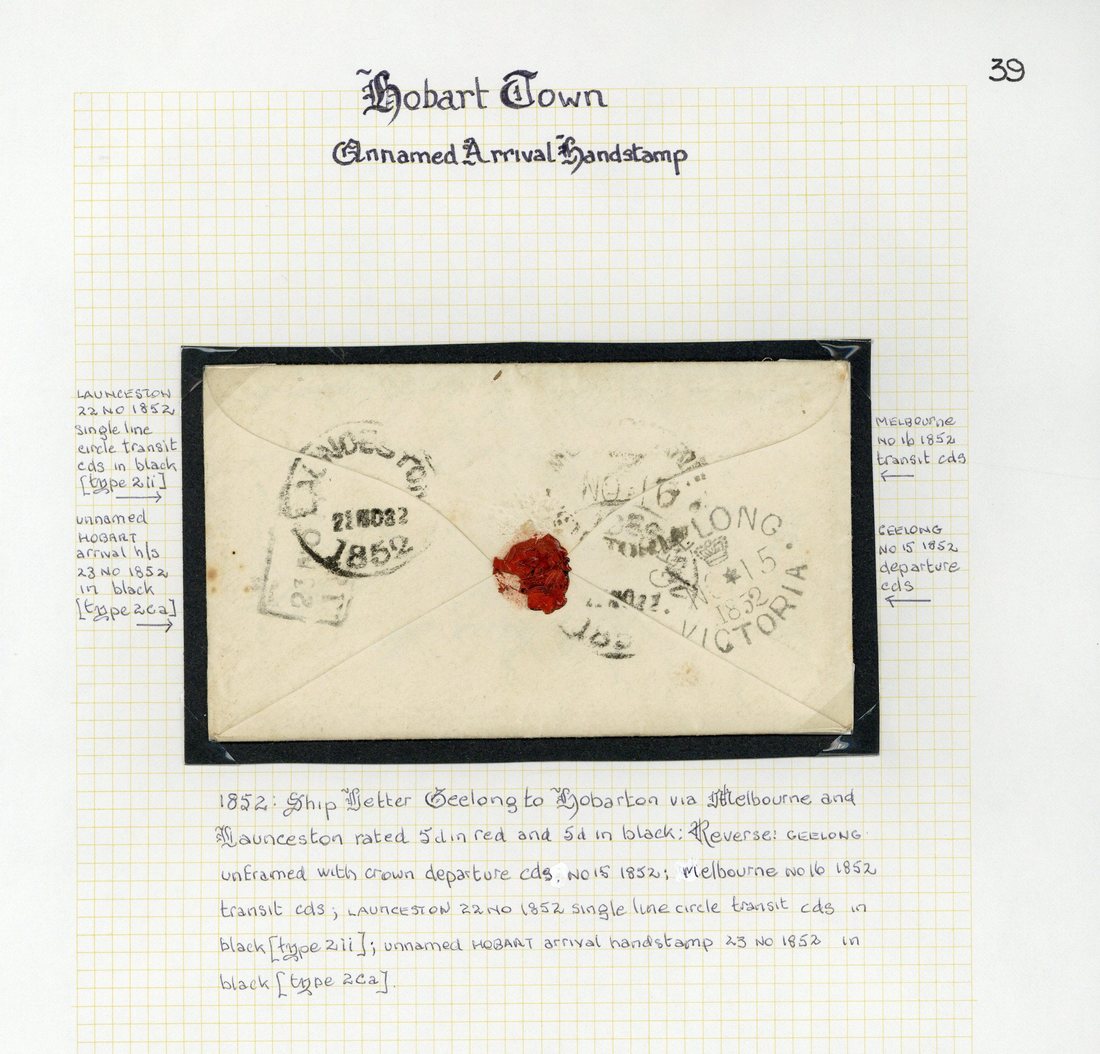 39
Hobart Town
Unnamed Arrival Handstamp
LAUNCESTON
22 NO 1852
single line
circle transit
cds in black
[type 2ii]
unnamed
HOBART
arrival h/s
23 NO 1852
in black
[type 2ca]
LAUNCESTON
1852
23 NO
NO 16
GEELONG
NO 15
1852
VICTORIA
MELBOURNE
NO 16 1852
transit cds
GEELONG
NO 15 1852
departure
cds
1852: Ship Letter Geelong to Hobarton via Melbourne and
Launceston rated 5d in red and 5d in black: Reverse: GEELONG
unframed with crown departure cds, NO 15 1852; Melbourne NO 16 1852
transit cds; LAUNCESTON 22 NO 1852 single line circle transit cds in
black [type 2ii]; unnamed HOBART arrival handstamp 23 NO 1852 in
black [type 2ca].